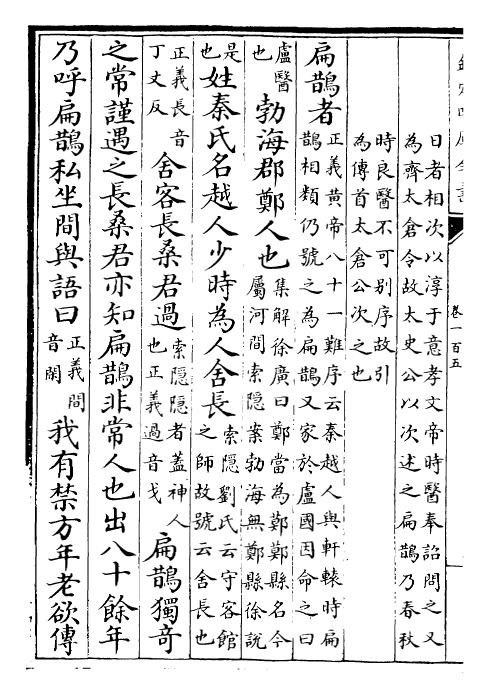 卷一百五
日者相次以淳于意孝文帝時醫奉詔問之又
為齊太倉令故太史公以次述之扁鵲乃春秋
時良醫不可别序故引
為傳首太倉公次之也
扁鵲者正義黄帝八十一難序云秦越人與軒轅時扁鵲相類仍號之為扁鵲又家於盧國因命之曰
盧醫也勃海郡鄭人也集解徐廣曰鄭當為鄭鄭縣名今屬河間索隱案勃海無鄭縣徐說
是也姓秦氏名越人少時為人舍長索隱劉氏云守客館之師故號云舍長也
正義長音丁丈反舍客長桑君過索隱隱者蓋神人也正義過音戈扁鵲獨竒
之常謹遇之長桑君亦知扁鵲非常人也出八十餘年
乃呼扁鵲私坐間與語曰正義間音閑我有禁方年老欲傳